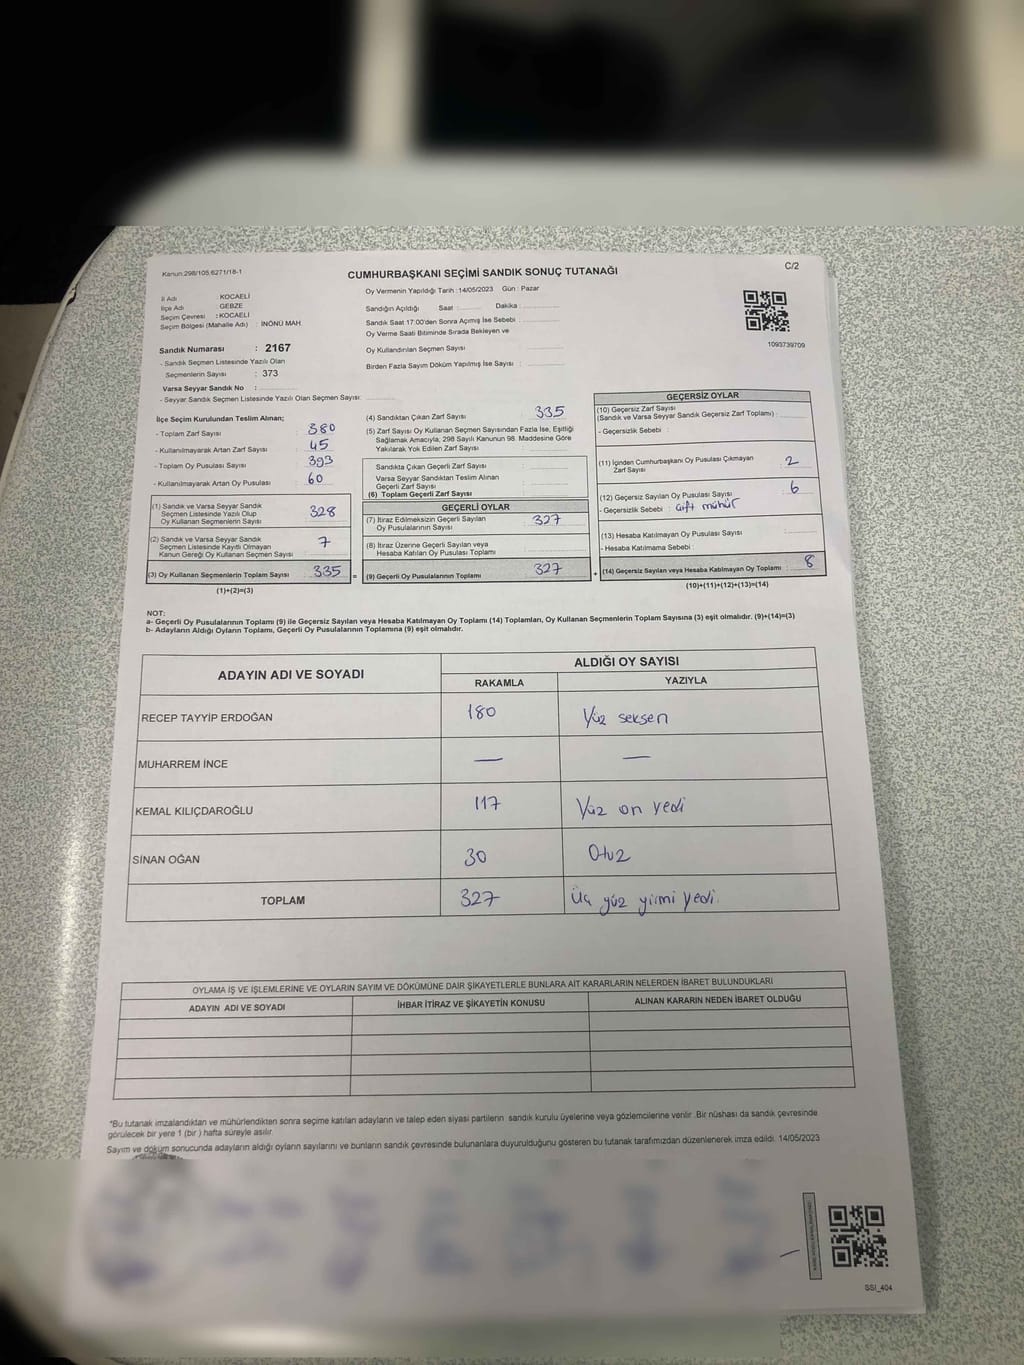 Kanun:298/105,6271/18-1
CUMHURBAŞKANI SEÇİMİ SANDIK SONUÇ TUTANAĞI
C/2
İl Adı : KOCAELİ
İlçe Adı : GEBZE
Seçim Çevresi : KOCAELİ
Seçim Bölgesi (Mahalle Adı) : İNÖNÜ MAH.
Sandık Numarası : 2167
- Sandık Seçmen Listesinde Yazılı Olan
Seçmenlerin Sayısı : 373
Varsa Seyyar Sandık No :
- Seyyar Sandık Seçmen Listesinde Yazılı Olan Seçmen Sayısı:
Oy Vermenin Yapıldığı Tarih :14/05/2023 Gün : Pazar
Sandığın Açıldığı Saat : Dakika :
Sandık Saat 17:00'den Sonra Açımış İse Sebebi :
Oy Verme Saati Bitiminde Sırada Bekleyen ve
Oy Kullandırılan Seçmen Sayısı :
Birden Fazla Sayım Döküm Yapılmış İse Sayısı :
1093739709
İlçe Seçim Kurulundan Teslim Alınan;
- Toplam Zarf Sayısı : 380
- Kullanılmayarak Artan Zarf Sayısı : 45
- Toplam Oy Pusulası Sayısı : 393
- Kullanılmayarak Artan Oy Pusulası : 60
(1) Sandık ve Varsa Seyyar Sandık
Seçmen Listesinde Yazılı Olup
Oy Kullanan Seçmenlerin Sayısı : 328
(2) Sandık ve Varsa Seyyar Sandık
Seçmen Listesinde Kayıtlı Olmayan
Kanun Gereği Oy Kullanan Seçmen Sayısı : 7
(3) Oy Kullanan Seçmenlerin Toplam Sayısı : 335 =
(1)+(2)=(3)
(4) Sandıktan Çıkan Zarf Sayısı : 335
(5) Zarf Sayısı Oy Kullanan Seçmen Sayısından Fazla İse, Eşitliği
Sağlamak Amacıyla, 298 Sayılı Kanunun 98. Maddesine Göre
Yakılarak Yok Edilen Zarf Sayısı :
Sandıkta Çıkan Geçerli Zarf Sayısı :
Varsa Seyyar Sandıktan Teslim Alınan
Geçerli Zarf Sayısı :
(6) Toplam Geçerli Zarf Sayısı :
GEÇERLİ OYLAR
(7) İtiraz Edilmeksizin Geçerli Sayılan
Oy Pusulalarının Sayısı : 327
(8) İtiraz Üzerine Geçerli Sayılan veya
Hesaba Katılan Oy Pusulası Toplamı :
(9) Geçerli Oy Pusulalarının Toplamı : 327 +
GEÇERSİZ OYLAR
(10) Geçersiz Zarf Sayısı
(Sandık ve Varsa Seyyar Sandık Geçersiz Zarf Toplamı) :
- Geçersizlik Sebebi :
(11) İçinden Cumhurbaşkanı Oy Pusulası Çıkmayan
Zarf Sayısı : 2
(12) Geçersiz Sayılan Oy Pusulası Sayısı : 6
- Geçersizlik Sebebi : Çift mühür
(13) Hesaba Katılmayan Oy Pusulası Sayısı :
- Hesaba Katılmama Sebebi :
(14) Geçersiz Sayılan veya Hesaba Katılmayan Oy Toplamı : 8
(10)+(11)+(12)+(13)=(14)
NOT:
a- Geçerli Oy Pusulalarının Toplamı (9) ile Geçersiz Sayılan veya Hesaba Katılmayan Oy Toplamı (14) Toplamları, Oy Kullanan Seçmenlerin Toplam Sayısına (3) eşit olmalıdır. (9)+(14)=(3)
b- Adayların Aldığı Oyların Toplamı, Geçerli Oy Pusulalarının Toplamına (9) eşit olmalıdır.
ADAYIN ADI VE SOYADI
ALDIĞI OY SAYISI
RAKAMLA YAZIYLA
RECEP TAYYİP ERDOĞAN 180 Yüz seksen
MUHARREM İNCE — —
KEMAL KILIÇDAROĞLU 117 Yüz on yedi
SİNAN OĞAN 30 Otuz
TOPLAM 327 Üç yüz yirmi yedi.
OYLAMA İŞ VE İŞLEMLERİNE VE OYLARIN SAYIM VE DÖKÜMÜNE DAİR ŞİKAYETLERLE BUNLARA AİT KARARLARIN NELERDEN İBARET BULUNDUKLARI
ADAYIN ADI VE SOYADI İHBAR İTİRAZ VE ŞİKAYETİN KONUSU ALINAN KARARIN NEDEN İBARET OLDUĞU
*Bu tutanak imzalandıktan ve mühürlendikten sonra seçime katılan adayların ve talep eden siyasi partilerin sandık kurulu üyelerine veya gözlemcilerine verilir. Bir nüshası da sandık çevresinde
görülecek bir yere 1 (bir ) hafta süreyle asılır.
Sayım ve döküm sonucunda adayların aldığı oyların sayılarını ve bunların sandık çevresinde bulunanlara duyurulduğunu gösteren bu tutanak tarafımızdan düzenlenerek imza edildi. 14/05/2023
SSI_404